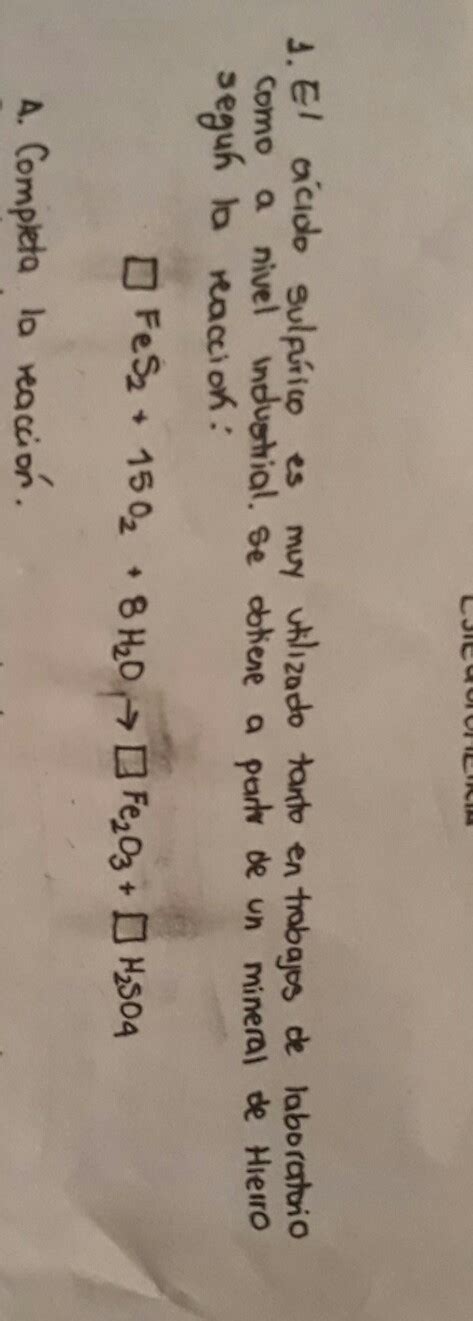 1. El ácido sulfúrico es muy utilizado tanto en trabajos de laboratorio
como a nivel industrial. se obtiene a partir de un mineral de Hierro
según la reacción:
□ FeS₂ + 15O₂ + 8H₂O → □ Fe₂O₃ + □ H₂SO₄
A. Completa la reacción.